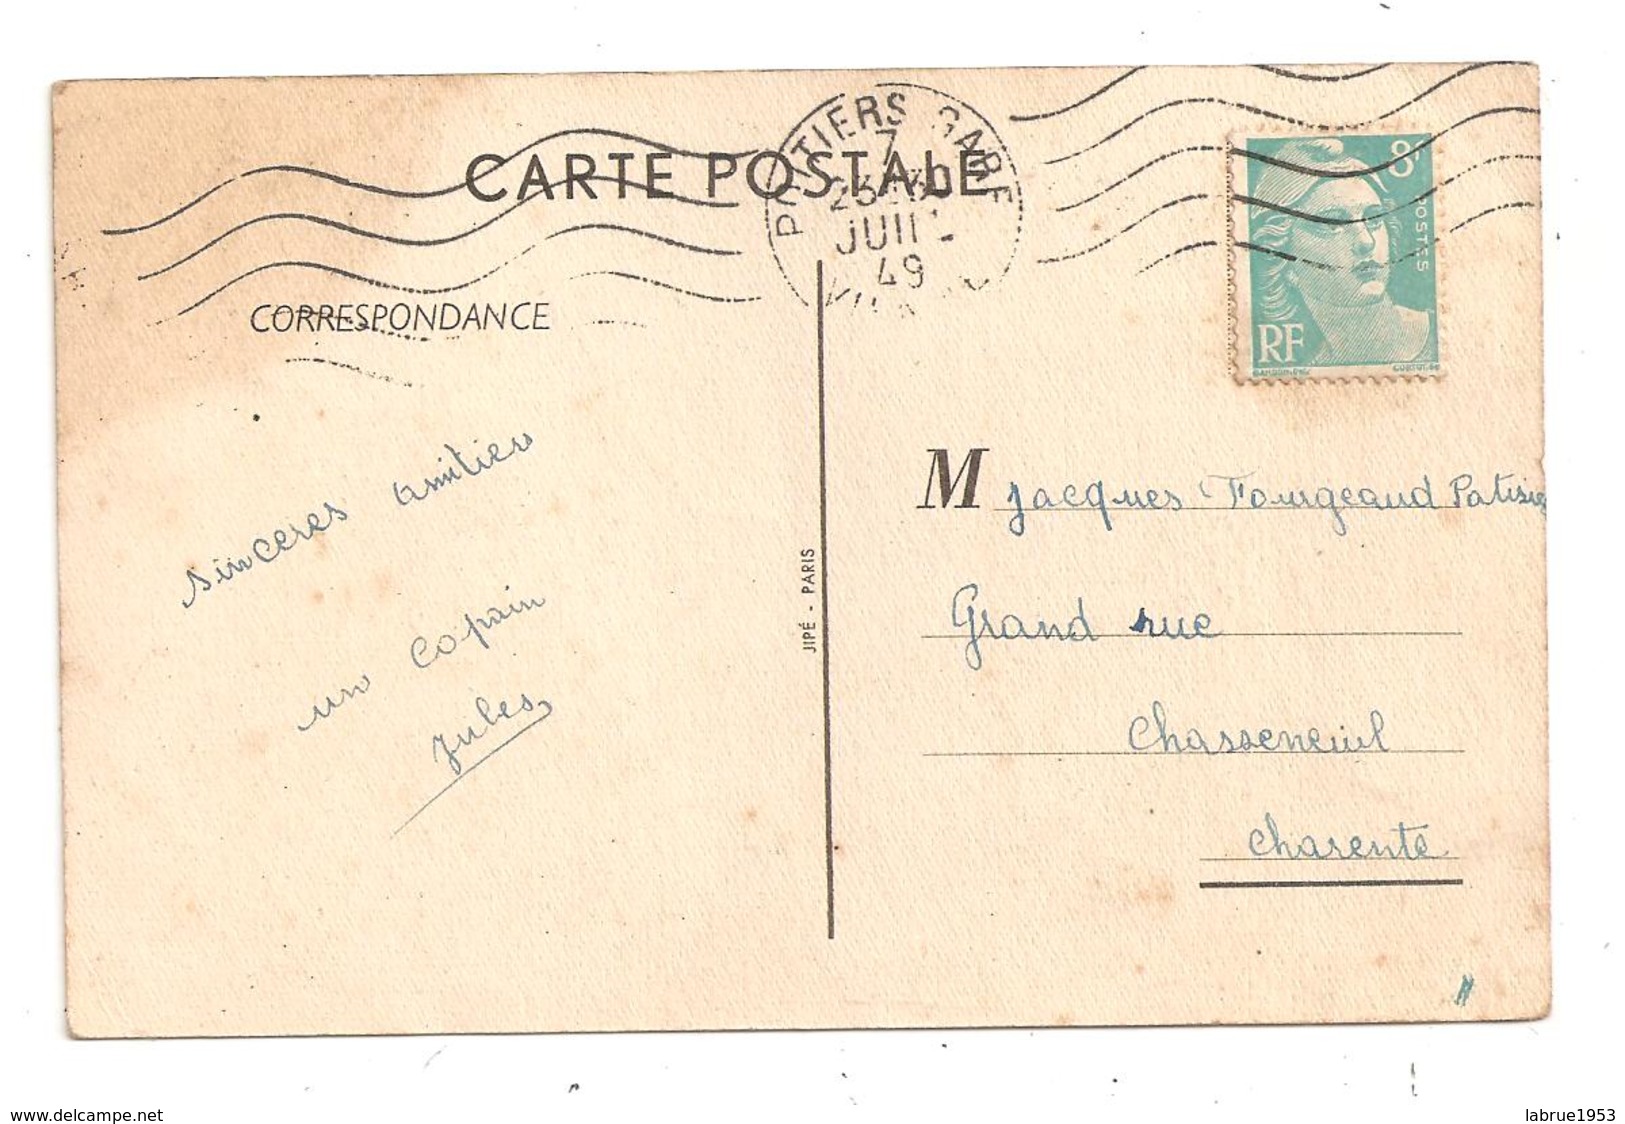 CARTE POSTALE
POITIERS GARE
7
JUIL
49
8F
POSTES
RF
GANDON.DEL
CORTOT.SC
CORRESPONDANCE
sinceres amitiers
un copain
Jules
JIPÉ - PARIS
M Jacques Fourgeaud Patisier
Grand rue
Chasseneuil
Charente
www.delcampe.net
labrue1953